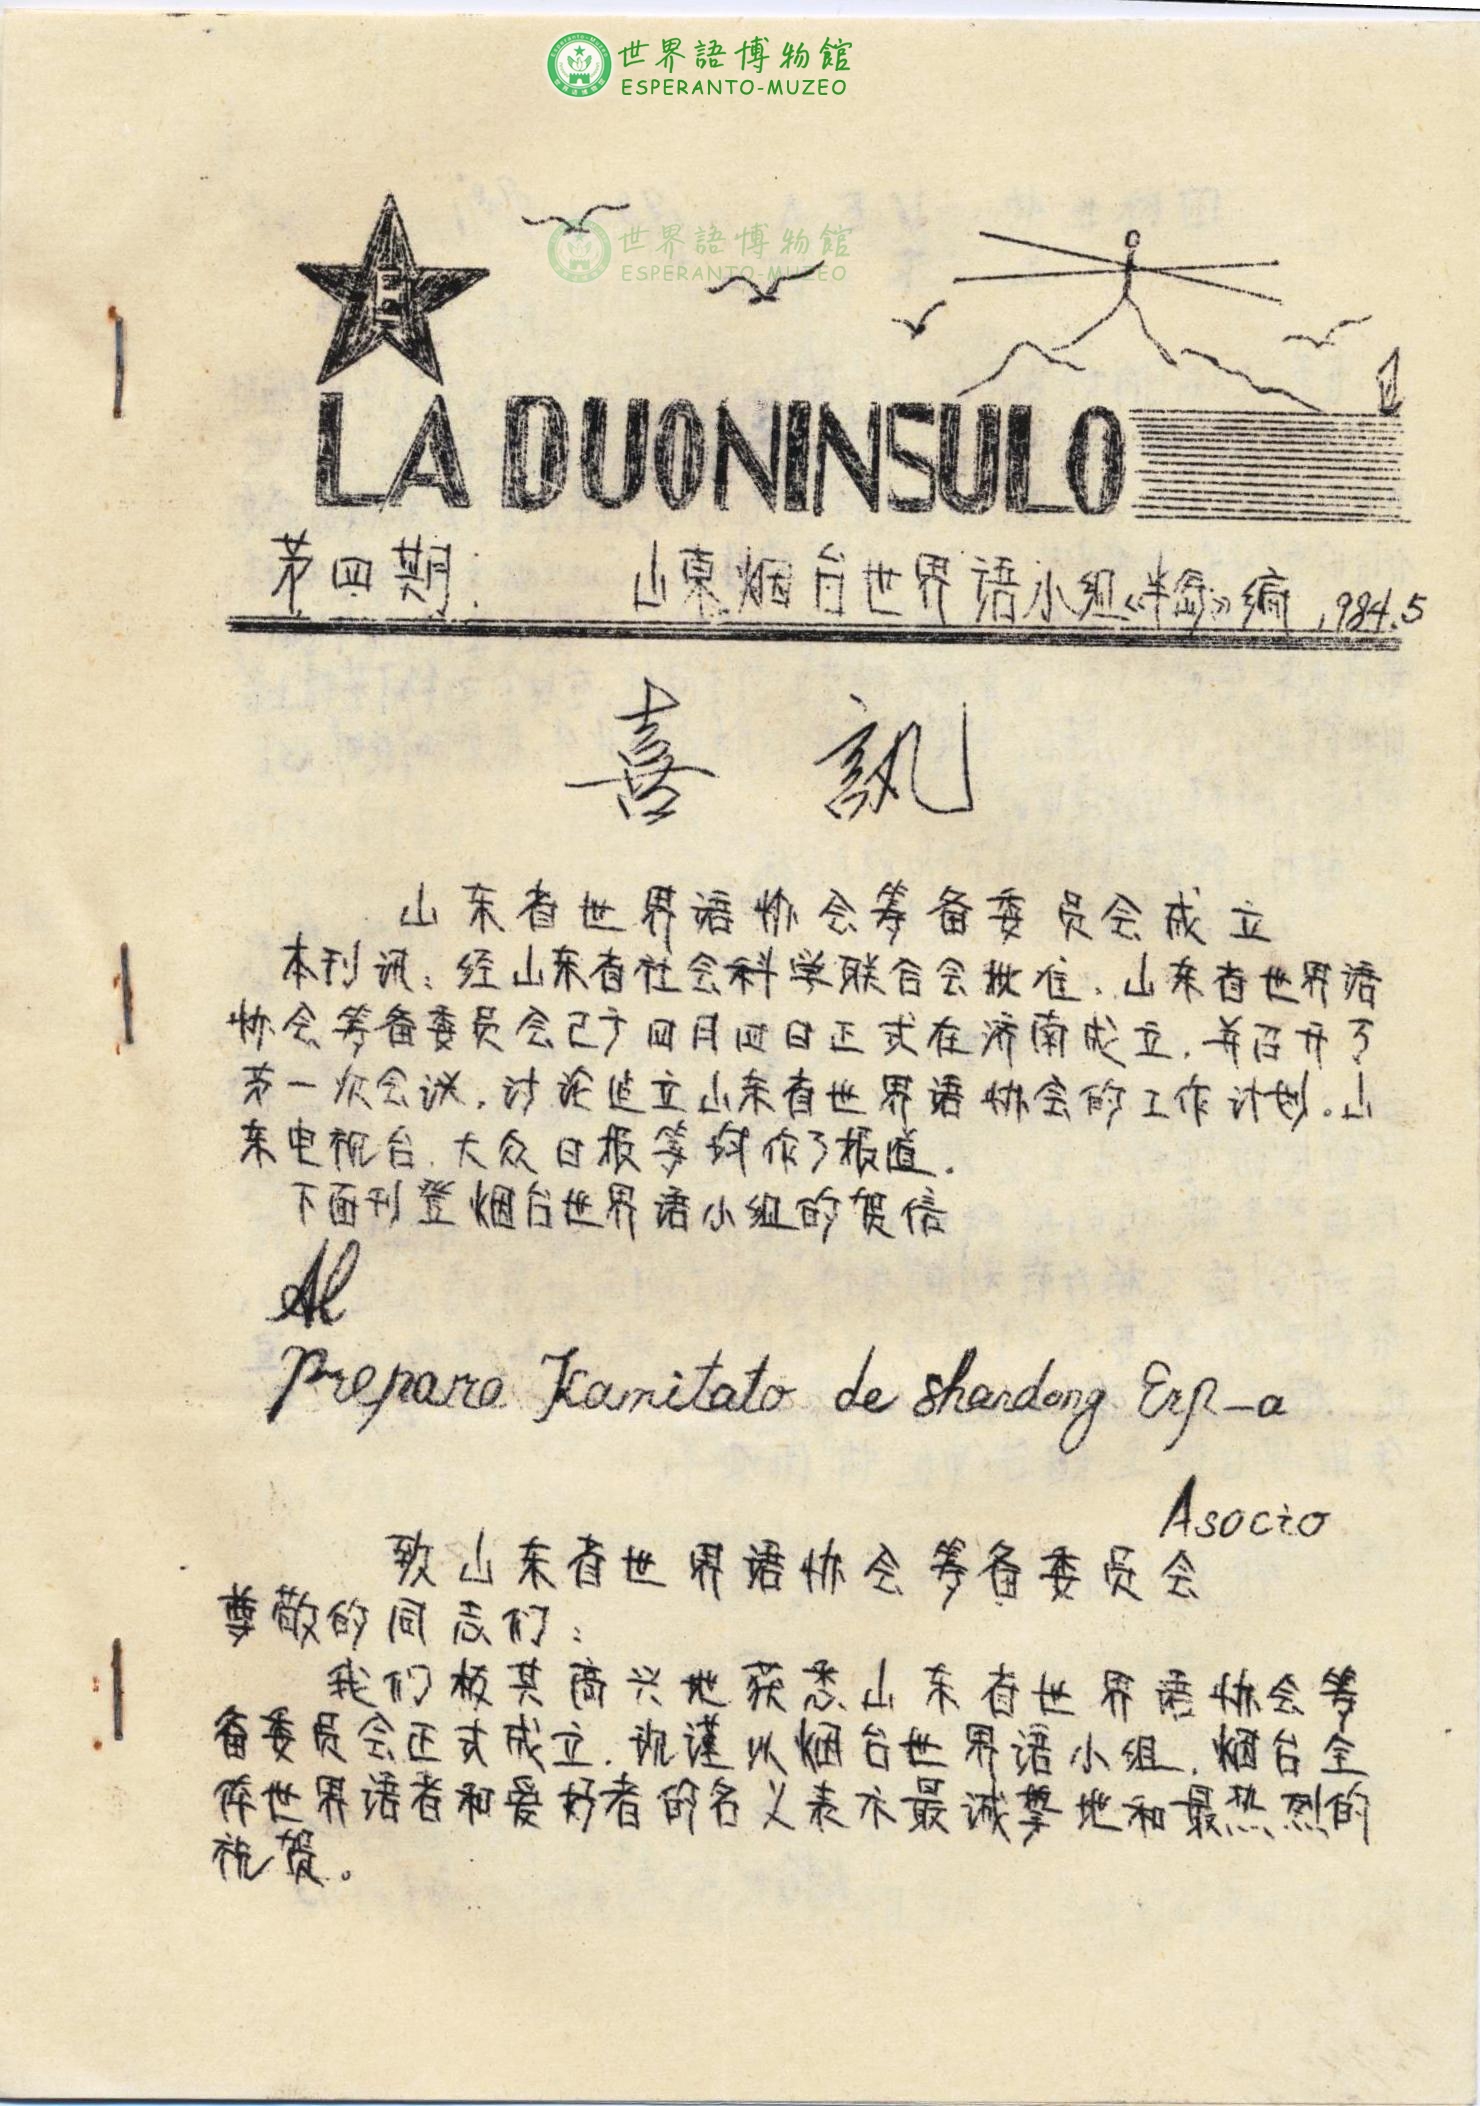 世界語博物館
ESPERANTO-MUZEO
世界語博物館
ESPERANTO-MUZEO
E
LA DUONINSULO
第四期
山東烟台世界语小组《半岛》编 1984.5
喜訊
山东省世界语协会筹备委员会成立
本刊讯：经山东省社会科学联合会批准，山东省世界语
协会筹备委员会已于四月四日正式在济南成立，并召开了
第一次会议，讨论建立山东省世界语协会的工作计划。山
东电视台、大众日报等均作了报道。
下面刊登烟台世界语小组的贺信
Al
Prepara Komitato de Shandong Esp-a
Asocio
致山东省世界语协会筹备委员会
尊敬的同志们：
我们极其高兴地获悉山东省世界语协会筹
备委员会正式成立，现谨以烟台世界语小组，烟台全
体世界语者和爱好者的名义表示最诚挚地和最热烈的
祝贺。